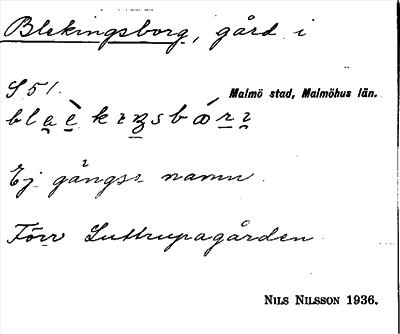 Blekingsborg, gård i
S 51.
Malmö stad, Malmöhus län.
Ej gångse namn
Förr Luttrupagården
NILS NILSSON 1936.